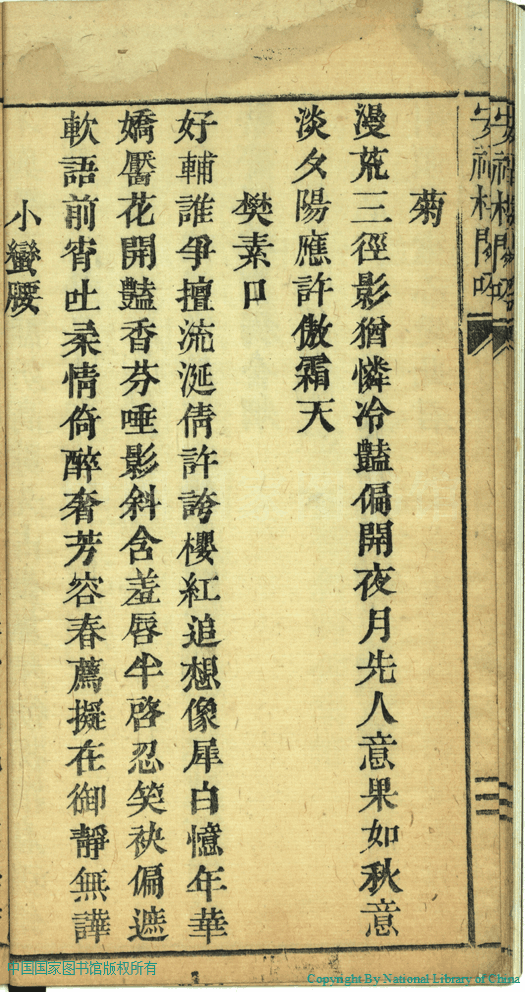 安福村閒吟
菊
漫荒三徑影猶憐冷豔偏開夜月先人意果如秋意
淡夕陽應許傲霜天
樊素口
好輔誰爭擅流涎倩許誇櫻紅追想像犀白憶年華
嬌靨花開豔香芬唾影斜含羞唇半啓忍笑袂偏遮
軟語前宵吐柔情倚醉奢芳容春薦擬在御靜無譁
小蠻腰
中国国家图书馆版权所有
Copyright By National Library of China